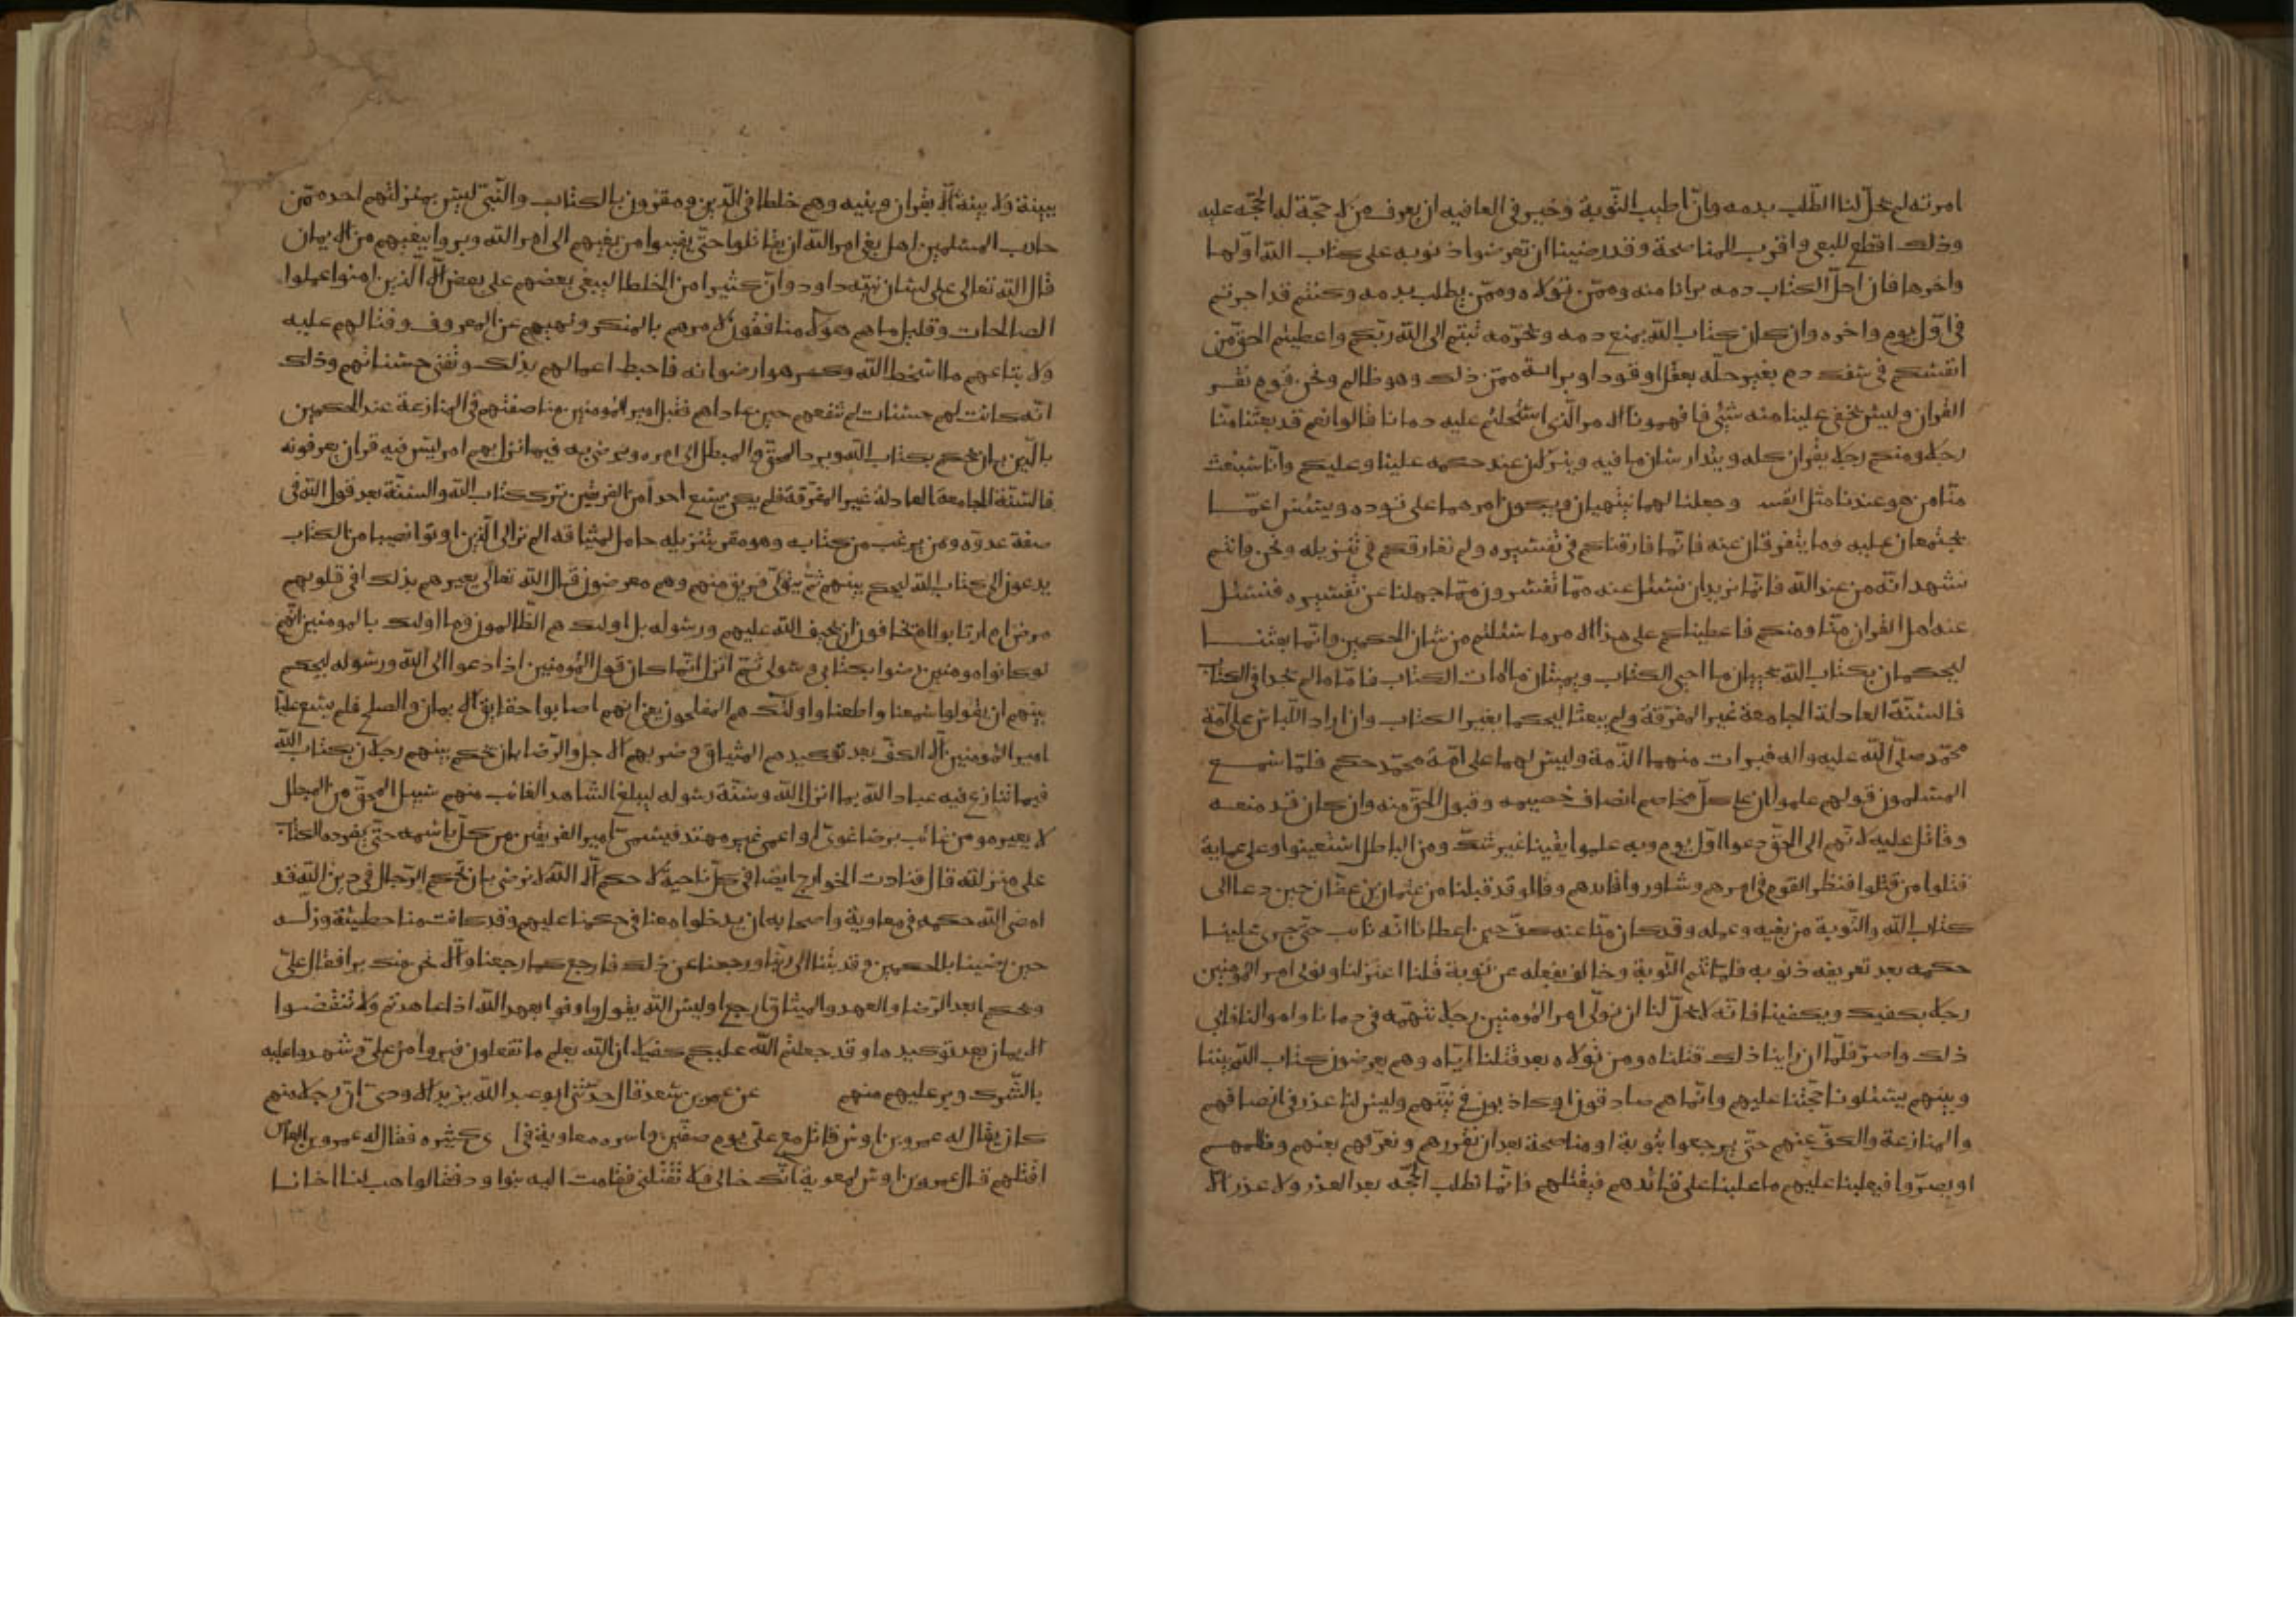 امرته لم يحل لنا الطلب بدمه وان اطيب التوبة وخير في العافيه ان يعرف من له حجة له الحجه عليه
وذلك اقطع للبغى واقرب للمناصحة وقد رضينا ان تعرضوا ذنوبه على كتاب الله اولها
واخرها فان احل الكتاب دمه برانا منه وممن تولاه وممن يطلب بدمه وكنتم قد اجرتم
فى اول يوم واخره وان كان كتاب الله يمنع دمه ويحرمه تبتم الى الله ربكم واعطيتم الحق من
انفسكم فى سفك دم بغير حله بعقل او قود او براة ممن ذلك وهو ظالم ونحن قوم نقر
القران وليس يخفى علينا منه شئ فافهمونا الامر الذى استحللتم عليه دمانا قالوا نعم قد بعثنا منا
رجلا ومنكم رجلا يقران كله ويتدارسان ما فيه وينزلان عند حكمه علينا وعليكم وانا سنبعث
منا من هو عندنا مثل انفسـ وجعلنا لهما ينتهيان ويكون امرهما على توده ويتسئل عمـا
يجتمعان عليه وما يتفرقان عنه فانما فارقناكم فى تفسيره ولم نفارقكم فى تنزيله ونحن وانتم
نشهد انه من عند الله فانما نريد ان نسئل عنه مما تفسرون مما جهلنا عن تفسيره فنسئل
عنه اهل القران منا ومنكم فاعطيناكم على هذا الامر ما سئلتم من شان الحكمين وانما بعثنـا
ليحكمان بكتاب الله يحييان ما احيى الكتاب ويميتان ما امات الكتاب فاما ما لم يجدا فى الكتاب
فالسنة العادلة الجامعة غير المفرقة ولم يبعثا ليحكما بغير الكتاب وان اراد اللباس على امة
محمد صلى الله عليه واله فبرات منهما الذمة وليس لهما على امة محمد حكم فلما سمـع
المسلمون قولهم علموا ان على كل مخاصم انصاف خصيمه وقبول الحق منه وان كان قد منعـه
وقاتل عليه لانهم الى الحق دعوا اول يوم وبه علموا يقينا غير شك ومن الباطل استعينوا وعلى عماية
قتلوا من قتلوا فنظر القوم فى امرهم وشاوروا قايدهم وقالوا قد قبلنا من عثمان بن عفان حين دعا الى
كتاب الله والتوبة من بغيه وعمله وقد كان منا عنه كف حين اعطانا انه تائب حتى جرى علينـا
حكمه بعد تعريفه ذنوبه فلما لم يتم التوبة وخالف بفعله عن توبة قلنا اعتزلنا ونولى امر المؤمنين
رجلا يكفيك ويكفينا فانه لا يحل لنا ان نولى امر المؤمنين رجلا نتهمه فى دمانا واموالنا فابى
ذلك واصر فلما ان راينا ذلك قتلناه ومن تولاه بعد قتلنا اياه وهم يعرضون كتاب الله بيننا
وبينهم يسئلونا حجتنا عليهم وانما هم صادقون او كاذبون فى نيتهم وليس لنا عذر فى انصافهم
والمنازعة والكف عنهم حتى يرجعوا بتوبة او مناصحة بعد ان نقررهم ونعرفهم بغيهم وظلمهـم
او يصروا فيعلبنا عليهم ما علبنا على قائدهم فيقتلهم فانما نطلب الحجه بعد العذر ولا عذر الا
ببينة ولا بينة الا بقران وبنيه وهم خلطا فى الدين ومقرون بالكتاب والنبى ليس بمنزلتهم احد ممن
حارب المسلمين اهل بغى امر الله ان يقاتلوا حتى يفيوا من بغيهم الى امر الله وبروا ببغيهم من الايمان
قال الله تعالى على لسان نبيه داود وان كثيرا من الخلطا ليبغى بعضهم على بعض الا الذين امنوا وعملوا
الصالحات وقليل ما هم هولا منافقون لامرهم بالمنكر ونهيهم عن المعروف وقتالهم عليه
ولاتباعهم ما اسخط الله وكرهوا رضوانه فاحبط اعمالهم بذلك وتفنى حسناتهم وذلك
انه كانت لهم حسنات لم تنفعهم حين عاداهم فقبل امير المؤمنين مناصفتهم فى المنازعة عند الحكمين
بالدين بان يحكم بكتاب الله ويرد المحق والمبطل الى امره ويرضى به فيما نزل بهم امر ليس فيه قران يعرفونه
فالسنة الجامعة العادلة غير المفرقة فلم يكن يسع احدا من الفريقين ترك كتاب الله والسنة بعد قول الله فى
صفة عدوه ومن يرغب من كتابه وهو مقر بتنزيله حامل لميثاقه الم تر الى الذين اوتوا نصيبا من الكتاب
يدعون الى كتاب الله ليحكم بينهم ثم يتولى فريق منهم وهم معرضون قال الله تعالى يعيرهم بذلك افى قلوبهم
مرض ام ارتابوا ام يخافون ان يحيف الله عليهم ورسوله بل اوليك هم الظالمون وما اوليك بالمومنين انهم
لو كانوا مومنين رضوا بكتابى ورسولى ثم انزل انما كان قول المؤمنين اذا دعوا الى الله ورسوله ليحكم
بينهم ان يقولوا سمعنا واطعنا واولئك هم المفلحون يعنى انهم اصابوا حقايق الايمان والصلح فلم يسع عليا
امير المؤمنين الا الكف بعد توكيدهم الميثاق وضربهم الاجل والرضا بان يحكم بينهم رجلان بكتاب الله
فيما تنازع فيه عباد الله بما انزل الله وسنة رسوله ليبلغ الشاهد الغائب منهم سبيل المحق من المبطل
لا يعير مومن غائب برضا غوى او اعمى غير مهتد فيسمى امير الفريقين من كل باسمه حتى يفرده الكتاب
على منزلته قال فنادت الخوارج ايضا فى كل ناحية لا حكم الا لله لا نرضى بان تحكم الرجال فى دين الله قد
امضى الله حكمه فى معاوية واصحابه ان يدخلوا معنا فى حكمنا عليهم وقد كانت منا خطيئة وزلـه
حين رضينا بالحكمين وقد تبنا الى ربنا ورجعنا عن ذلك فارجع كما رجعنا والا نحن منك برا فقال على
ويحكم ابعد الرضا والعهد والميثاق ارجع او ليس الله يقول واوفوا بعهد الله اذا عاهدتم ولا تنقضـوا
الايمان بعد توكيدها وقد جعلتم الله عليكم كفيلا ان الله يعلم ما تفعلون فبروا من على وشهدوا عليه
بالشرك وبر عليهم منهم عن عمر بن سعد قال حدثنى ابو عبد الله يزيد الاودى ان رجلا منهم
كان يقال له عمرو بن اوس قاتل مع على يوم صفين واسره معاوية فى اسرى كثيره فقال له عمرو بن العاص
اقتلهم قال عمرو بن اوس لمعوية انك خالى فلا تقتلنى فقامت اليه بنوا ود فقالوا هب لنا اخانـا